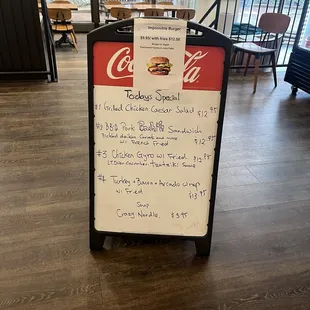 Impossible Burger
$9.50 with Fries $12.50
Coca-Cola
Today's Special
#1 Grilled Chicken Caesar Salad $12.95
#2 BBQ Pork Sandwich
Pickled daikon Carrot and
W/ French Fried $12.95
#3 Chicken Gyro W/ Fried $12.95
Tzatziki Sauce
#4 Turkey + Bacon + Avocado Wrap
W/ Fried $13.95
Soup
Crazy Noodle $9.95